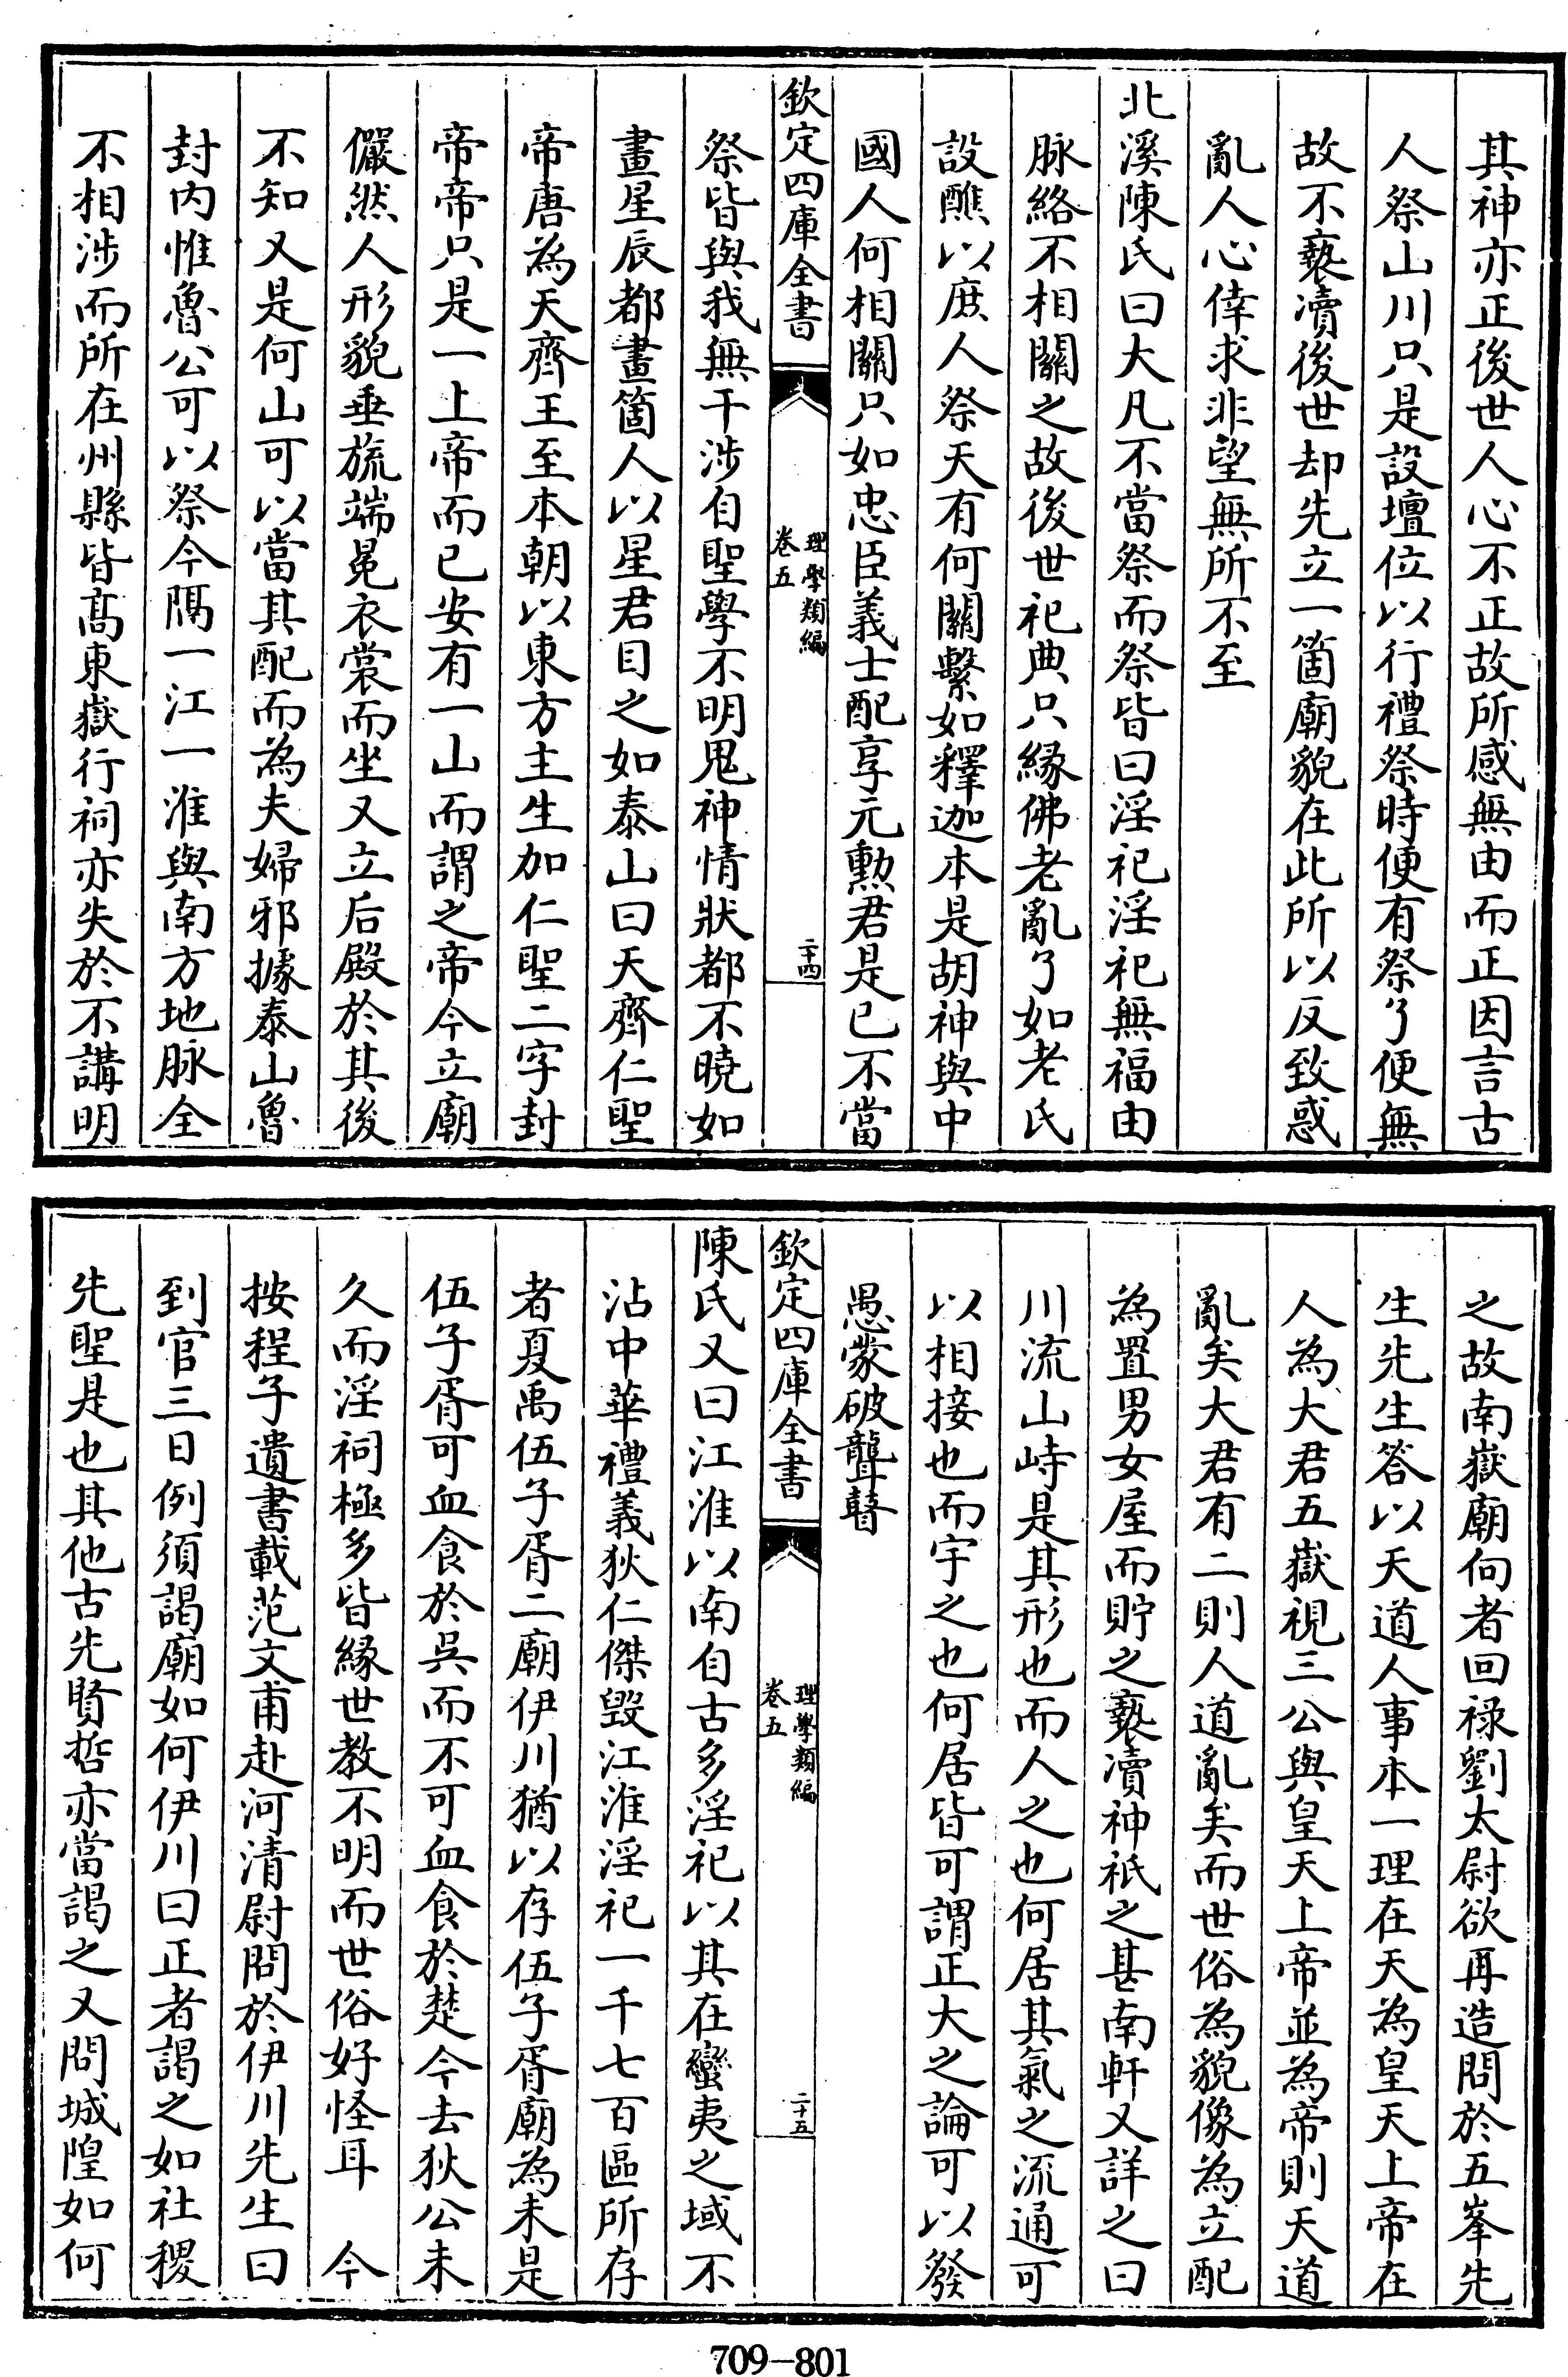 其神亦正後世人心不正故所感無由而正因言古
人祭山川只是設壇位以行禮祭時便有祭了便無
故不褻瀆後世却先立一箇廟貌在此所以反致惑
亂人心倖求非望無所不至
北溪陳氏曰大凡不當祭而祭皆曰淫祀淫祀無福由
脉絡不相關之故後世祀典只緣佛老亂了如老氏
設醮以庶人祭天有何關繫如釋迦本是胡神與中
國人何相關只如忠臣義士配享元勲君是已不當
欽定四庫全書
理學類編
卷五
二十四
祭皆與我無干涉自聖學不明鬼神情狀都不曉如
畫星辰都畫箇人以星君目之如泰山曰天齊仁聖
帝唐為天齊王至本朝以東方主生加仁聖二字封
帝帝只是一上帝而已安有一山而謂之帝今立廟
儼然人形貌垂旒端冕衣裳而坐又立后殿於其後
不知又是何山可以當其配而為夫婦邪據泰山魯
封内惟魯公可以祭今隔一江一淮與南方地脉全
不相涉而所在州縣皆髙東嶽行祠亦失於不講明
之故南嶽廟向者回禄劉太尉欲再造問於五峯先
生先生答以天道人事本一理在天為皇天上帝在
人為大君五嶽視三公與皇天上帝並為帝則天道
亂矣大君有二則人道亂矣而世俗為貌像為立配
為置男女屋而貯之褻瀆神祇之甚南軒又詳之曰
川流山峙是其形也而人之也何居其氣之流通可
以相接也而宇之也何居皆可謂正大之論可以發
愚蒙破聾瞽
欽定四庫全書
理學類編
卷五
二十五
陳氏又曰江淮以南自古多淫祀以其在蠻夷之域不
沾中華禮義狄仁傑毀江淮淫祀一千七百區所存
者夏禹伍子胥二廟伊川猶以存伍子胥廟為未是
伍子胥可血食於吳而不可血食於楚今去狄公未
久而淫祠極多皆緣世教不明而世俗好怪耳　今
按程子遺書載范文甫赴河清尉問於伊川先生曰
到官三日例須謁廟如何伊川曰正者謁之如社稷
先聖是也其他古先賢哲亦當謁之又問城隍如何
709-801